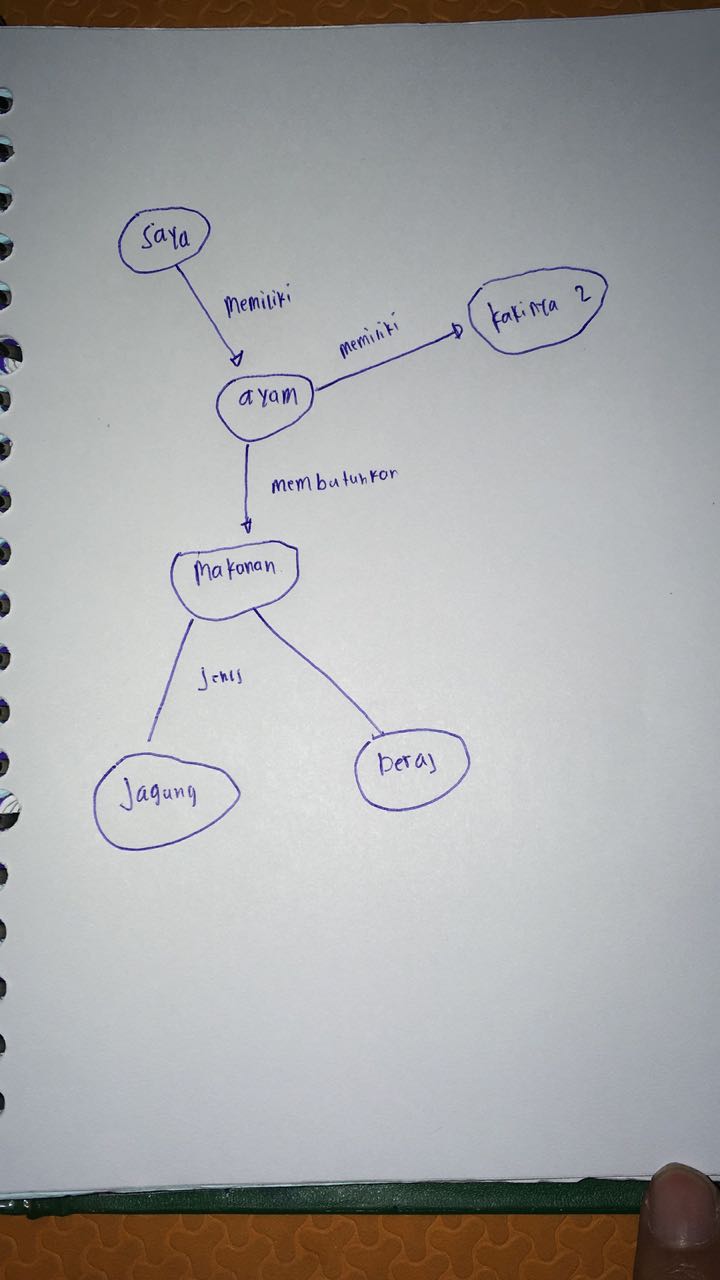 saya
memiliki
memiliki
kakinya 2
ayam
membutuhkan
makanan
jenis
Jagung
beras